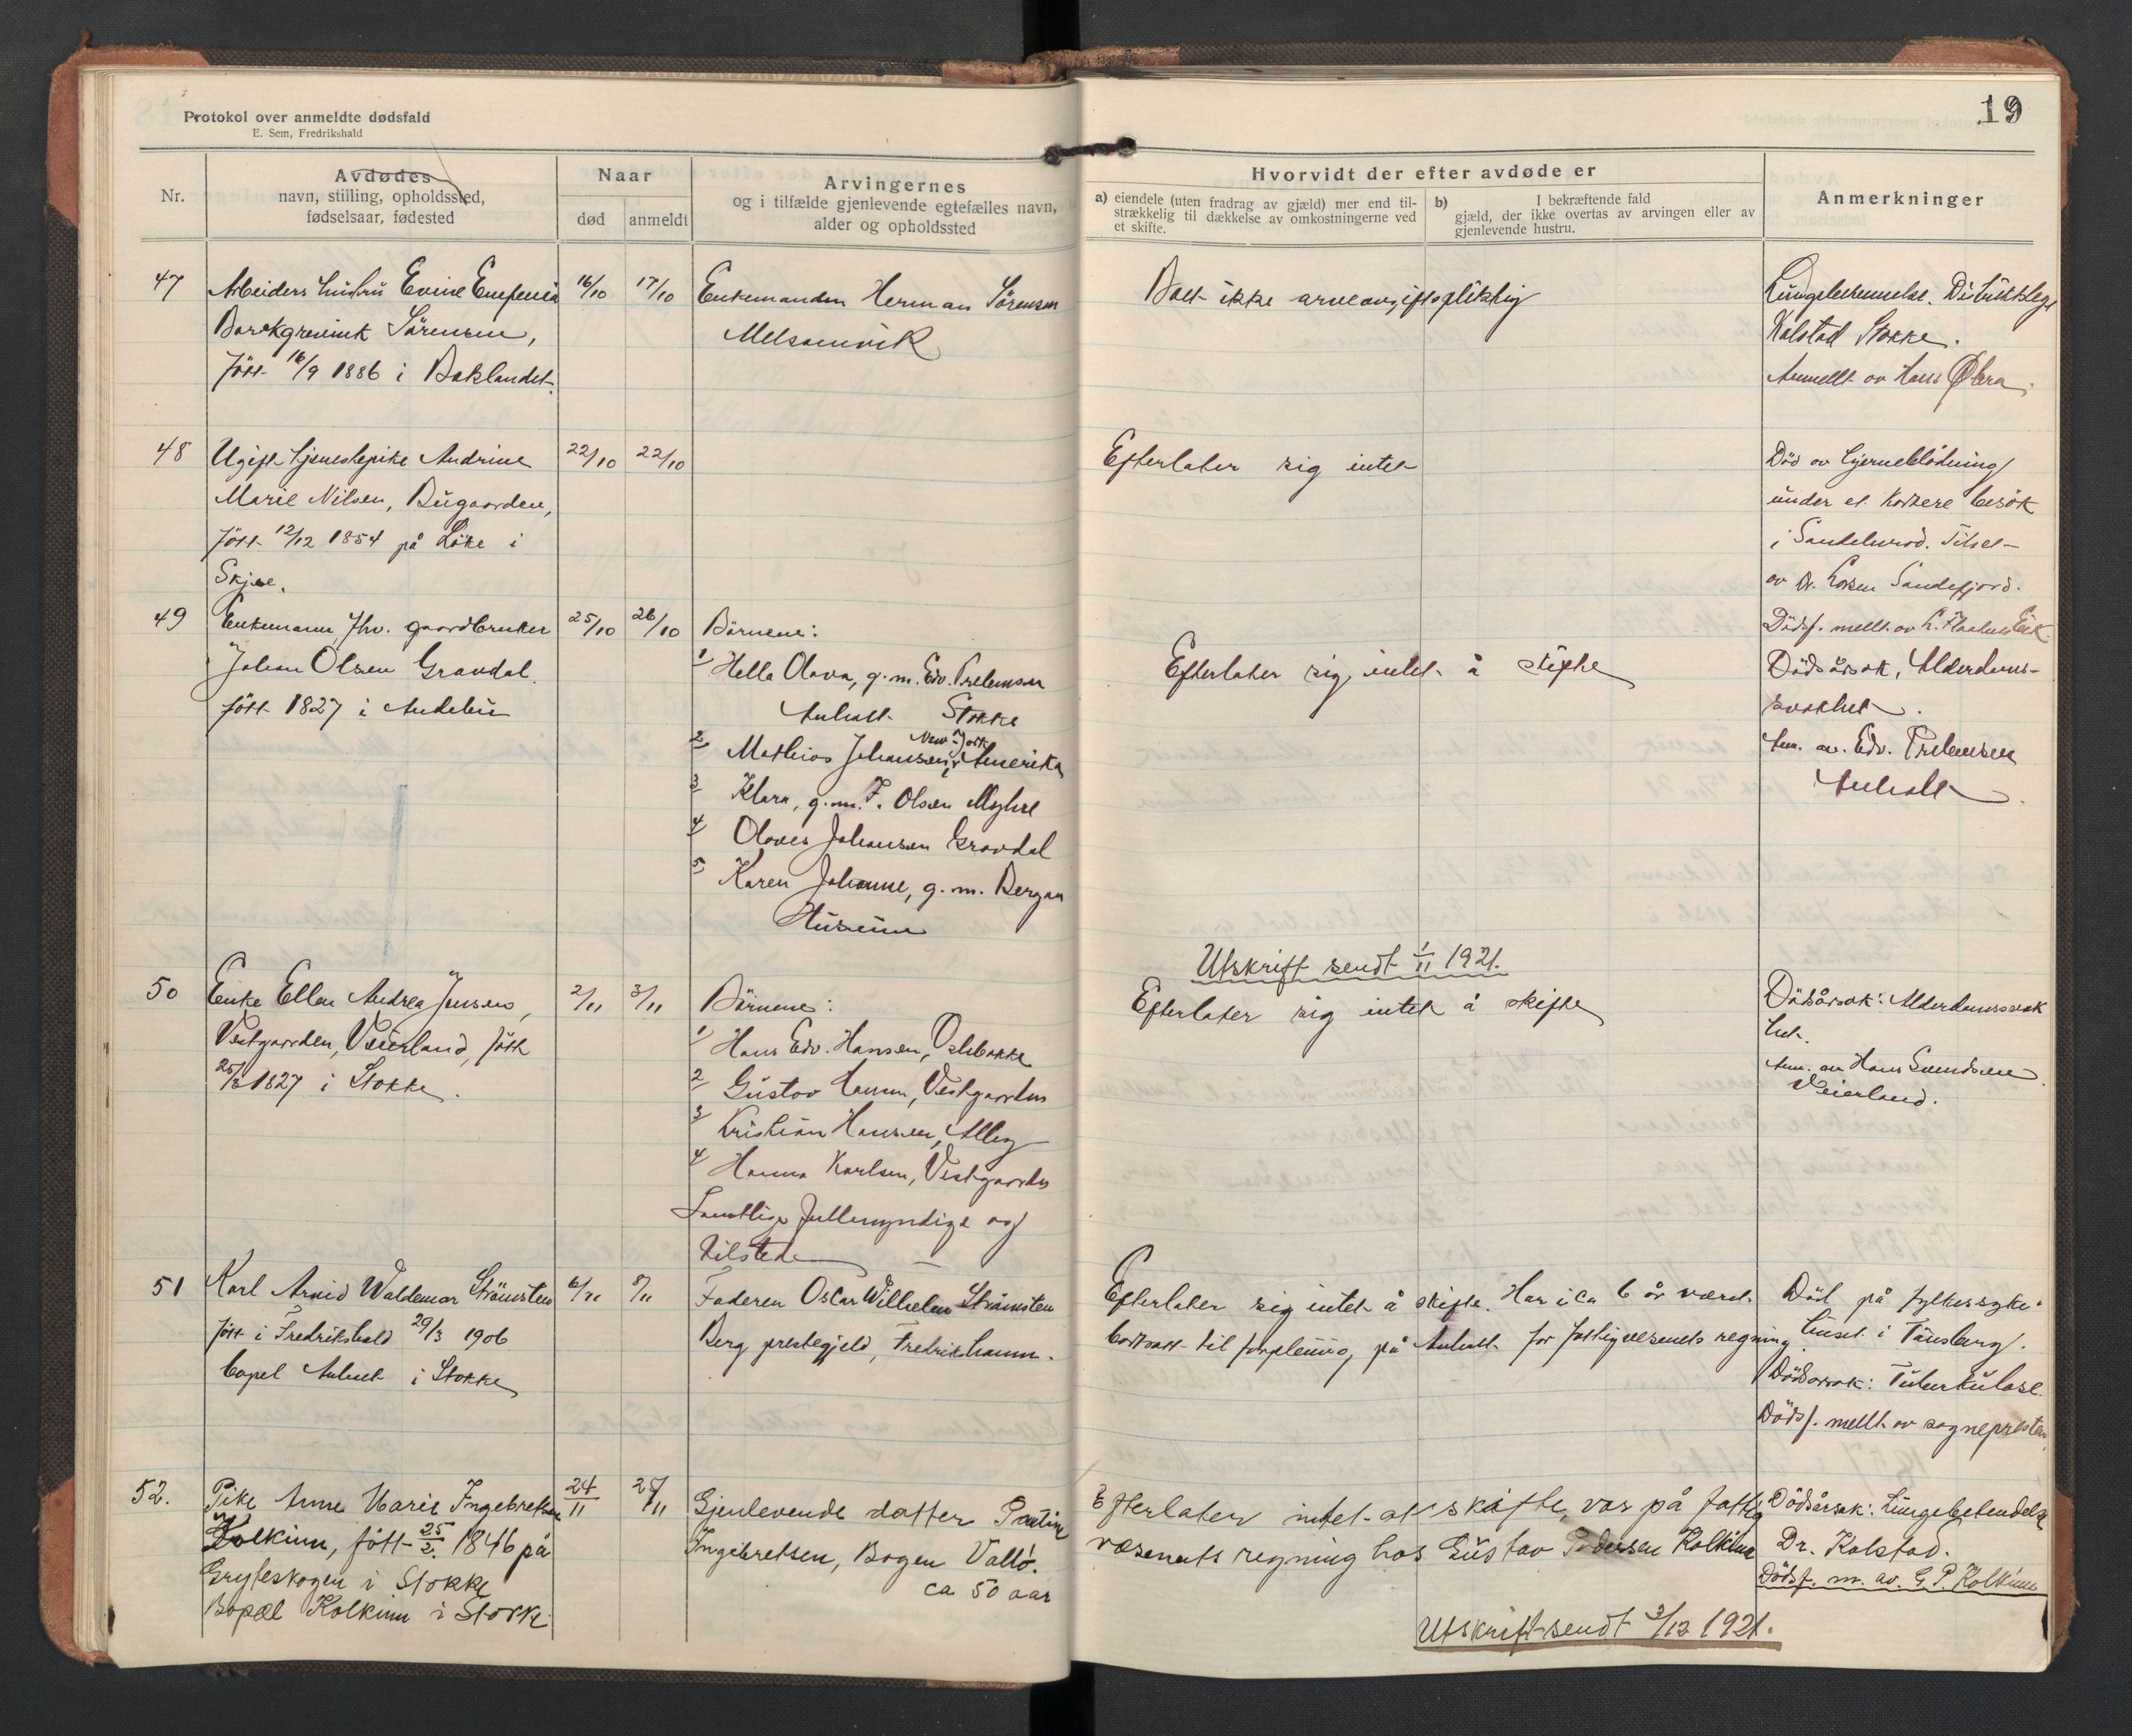 Protokol over anmeldte dødsfald
E. Sem, Fredrikshald
19
Nr.
Avdødes
navn, stilling, opholdssted,
fødselsaar, fødested
Naar
død
anmeldt
Arvingernes
og i tilfælde gjenlevende egtefælles navn,
alder og opholdssted
Hvorvidt der efter avdøde er
a) eiendele (uten fradrag av gjæld) mer end til-
strækkelig til dækkelse av omkostningerne ved
et skifte.
b) I bekræftende fald
gjæld, der ikke overtas av arvingen eller av
gjenlevende hustru.
Anmerkninger
47
Arbeiders hustru Evine
Sörensen,
född 16/9 1886 i Baklandet.
16/10
17/10
Enkemanden Herman Sörensen
Melsomvik
Boet ikke arveavgiftspliktig
Lungebetennelse. Distriktslege
Kolstad Stokke.
Anmeldt av Hans
48
Ugift tjenestepike Andrine
Marie Nilsen, Bugaarden,
född 12/12 1854 på Löke i
Skjee.
22/10
22/10
Efterlater sig intet
Död av hjerneblödning
under et kortere besök
i Sandeherred.
av Dr. Sandefjord.
Dödsf. meldt av
49
Enkemann, fhv. gaardbruker
Johan Olsen Gravdal.
född 1827 i Andebu
25/10
26/10
Börnene:
1/ Hella Olava, g.m. Edv.
Anholt Stokke
2/ Mathias Johansen, New-York i Amerika
3/ Klara, g.m. F. Olsen Myhre
4/ Olaves Johansen Gravdal
5/ Karen Johanne, g.m. Bergan
Husum
Efterlater sig intet å skifte
Dödsårsak, Alderdoms-
svakhet.
An. av. Edv.
Anholt.
Utskrift sendt 1/11 1921.
50
Enke Ellen Andrea Jensen,
Vestgaarden, Veierland, född
25/3 1827 i Stokke.
2/11
3/11
Börnene:
1/ Hans Edv. Hansen, Oslebakke
2/ Gustav Hansen, Vestgaarden
3/ Kristian Hansen,
4/ Hanna Karlsen, Vestgaarden
Samtlige fullmyndige og
tilstede
Efterlater sig intet å skifte
Dödsårsak: Alderdomssvak
het.
Anm. av Hans Svendsen
Veierland.
51
Karl Arvid Waldemar Strömsten
född i Fredrikshald 29/3 1906
bopel Anholt i Stokke
6/11
8/11
Faderen Oscar Wilhelm Strömsten
Berg prestegjeld, Fredrikshamn.
Efterlater sig intet å skifte. Har i ca 6 år været
bortsatt til forpleining på Anholt for fattigvesenets regning
Död på fylkessyke-
huset i Tönsberg.
Dödsårsak: Tuberkulose.
Dödsf. meldt av sognepresten
52.
Pike Anne Marie Ingebretsen
Kolkinn, född 25/2 1846 på
Gryteskogen i Stokke
Bopæl Kolkinn i Stokke
24/11
25/11
Gjenlevende datter Pauline
Ingebretsen, Bogen Vallö.
ca 50 aar
Efterlater intet at skifte, var på fattig
væsenets regning hos Gustav Pedersen Kolkinn
Dödsårsak: Lungebetendelse
Dr. Kolstad.
Dödsf. m. av. G. P. Kolkinn
Utskrift sendt 3/12 1921.